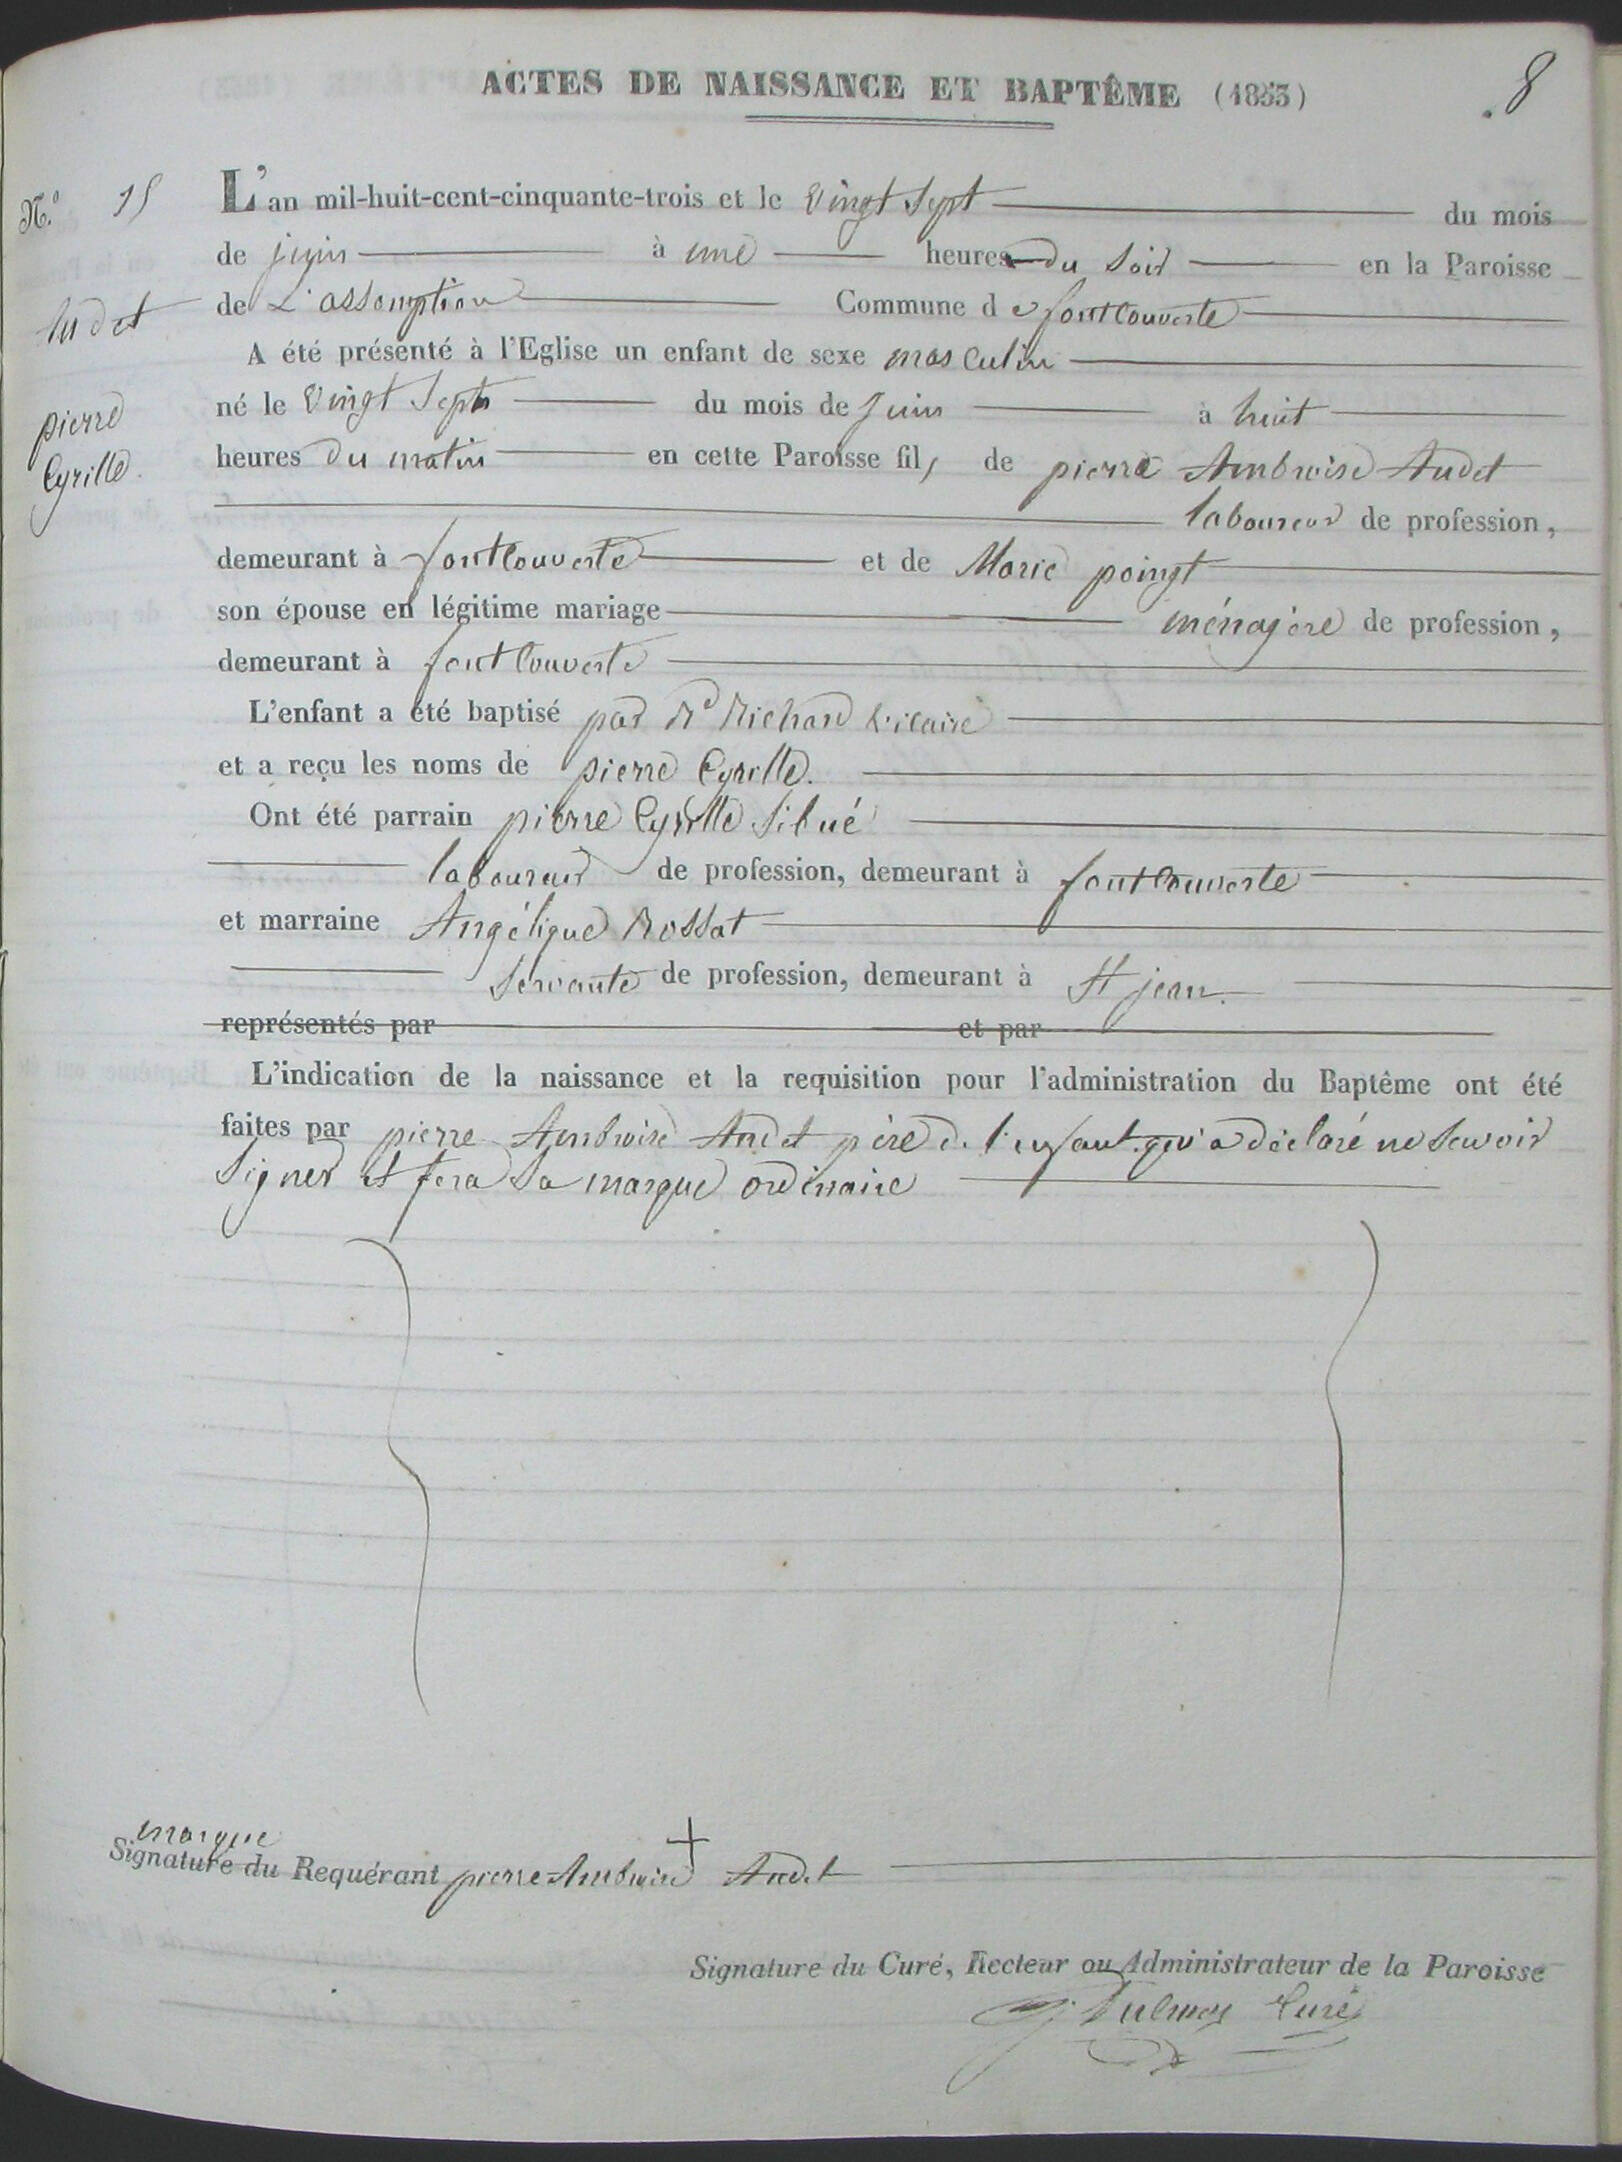 ACTES DE NAISSANCE ET BAPTÊME (1853)
8
N.º 15
Audet
pierre
Cyrille.
L'an mil-huit-cent-cinquante-trois et le vingt sept du mois
de juin à une heures du soir en la Paroisse
de L'assomption Commune de fontcouverte
A été présenté à l'Eglise un enfant de sexe masculin
né le vingt sept du mois de juin à huit
heures du matin en cette Paroisse fils de pierre Ambroise Audet
laboureur de profession,
demeurant à fontcouverte et de Marie poingt
son épouse en légitime mariage ménagère de profession,
demeurant à fontcouverte
L'enfant a été baptisé par Rd Richard vicaire
et a reçu les noms de pierre Cyrille.
Ont été parrain pierre Cyrille Sibué
laboureur de profession, demeurant à fontcouverte
et marraine Angélique Rossat
servante de profession, demeurant à St jean.
représentés par et par
L'indication de la naissance et la requisition pour l'administration du Baptême ont été
faites par pierre Ambroise Audet père de l'enfant qui a déclaré ne savoir
signer et fera sa marque ordinaire
marque
Signature du Requérant pierre Ambroise + Audet
Signature du Curé, Recteur ou Administrateur de la Paroisse
Curé